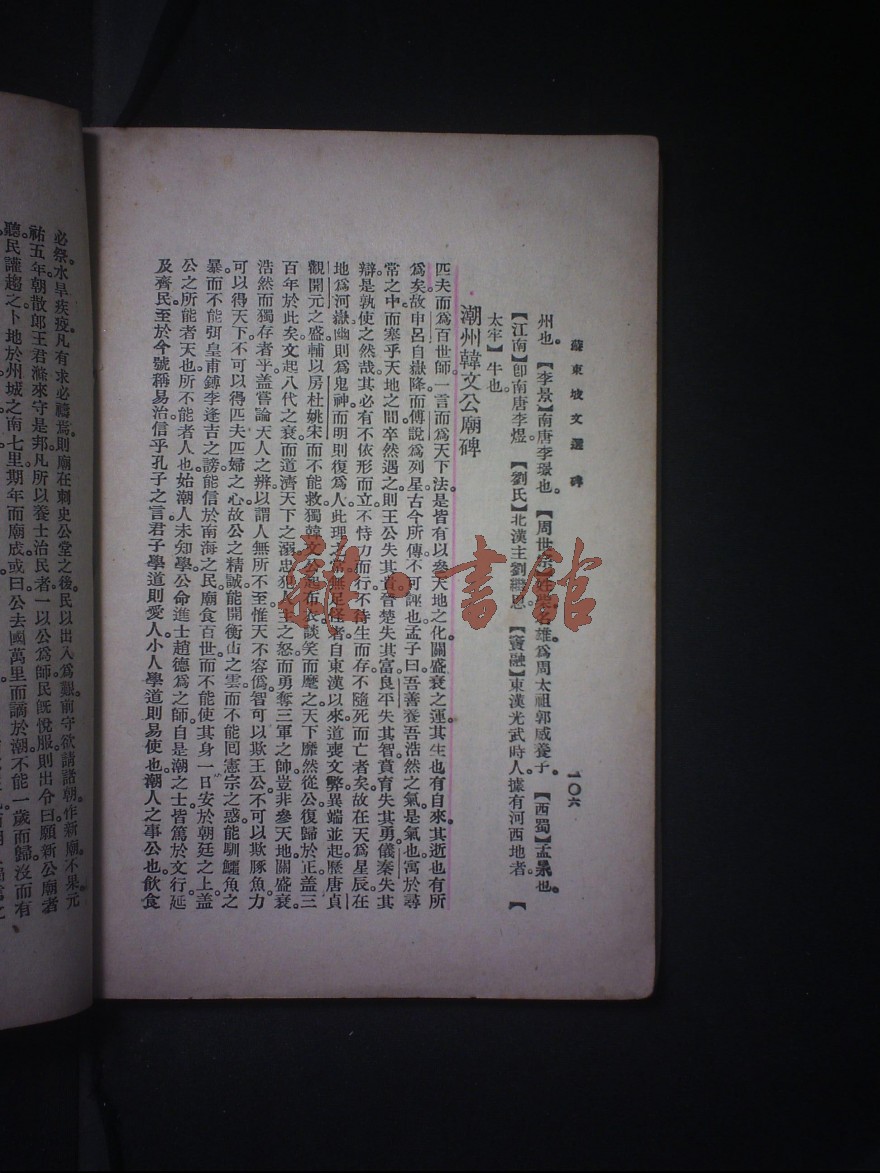 蘇東坡文選 碑
一〇六
州也。【李景】南唐李璟也。【周世宗】姓柴名雄爲周太祖郭威養子。【西蜀】孟昶也。
【江南】卽南唐李煜。【劉氏】北漢主劉繼恩。【竇融】東漢光武時人據有河西地者。【
太牢】牛也。
潮州韓文公廟碑
匹夫而爲百世師。一言而爲天下法。是皆有以參天地之化。關盛衰之運。其生也有自來。其逝也有所
爲矣。故申呂自嶽降。而傅說爲列星。古今所傳。不可誣也。孟子曰。吾善養吾浩然之氣。是氣也。寓於尋
常之中。而塞乎天地之間。卒然遇之。則王公失其貴。晉楚失其富。良平失其智。賁育失其勇。儀秦失其
辯。是孰使之然哉。其必有不依形而立。不恃力而行。不待生而存。不隨死而亡者矣。故在天爲星辰。在
地爲河嶽。幽則爲鬼神。而明則復爲人。此理之常。無足怪者。自東漢以來。道喪文弊。異端並起。歷唐貞
觀開元之盛。輔以房杜姚宋而不能救。獨韓文公起布衣。談笑而麾之。天下靡然從公。復歸於正。盖三
百年於此矣。文起八代之衰。而道濟天下之溺。忠犯人主之怒。而勇奪三軍之帥。豈非參天地。關盛衰。
浩然而獨存者乎。盖嘗論天人之辨。以謂人無所不至。惟天不容僞。智可以欺王公。不可以欺豚魚。力
可以得天下。不可以得匹夫匹婦之心。故公之精誠。能開衡山之雲。而不能回憲宗之惑。能馴鱷魚之
暴。而不能弭皇甫鎛李逢吉之謗。能信於南海之民。廟食百世。而不能使其身一日安於朝廷之上。盖
公之所能者天也。所不能者人也。始潮人未知學。公命進士趙德爲之師。自是潮之士。皆篤於文行。延
及齊民。至於今。號稱易治。信乎孔子之言。君子學道則愛人。小人學道則易使也。潮人之事公也。飲食
必祭。水旱疾疫。凡有求必禱焉。則廟在刺史公堂之後。民以出入爲艱。前守欲請諸朝作新廟。不果。元
祐五年。朝散郎王君滌來守是邦。凡所以養士治民者。一以公爲師。民旣悅服。則出令曰。願新公廟者
聽。民讙趨之。卜地於州城之南七里。期年而廟成。或曰。公去國萬里。而謫於潮。不能一歲而歸。沒而有
雜·書館